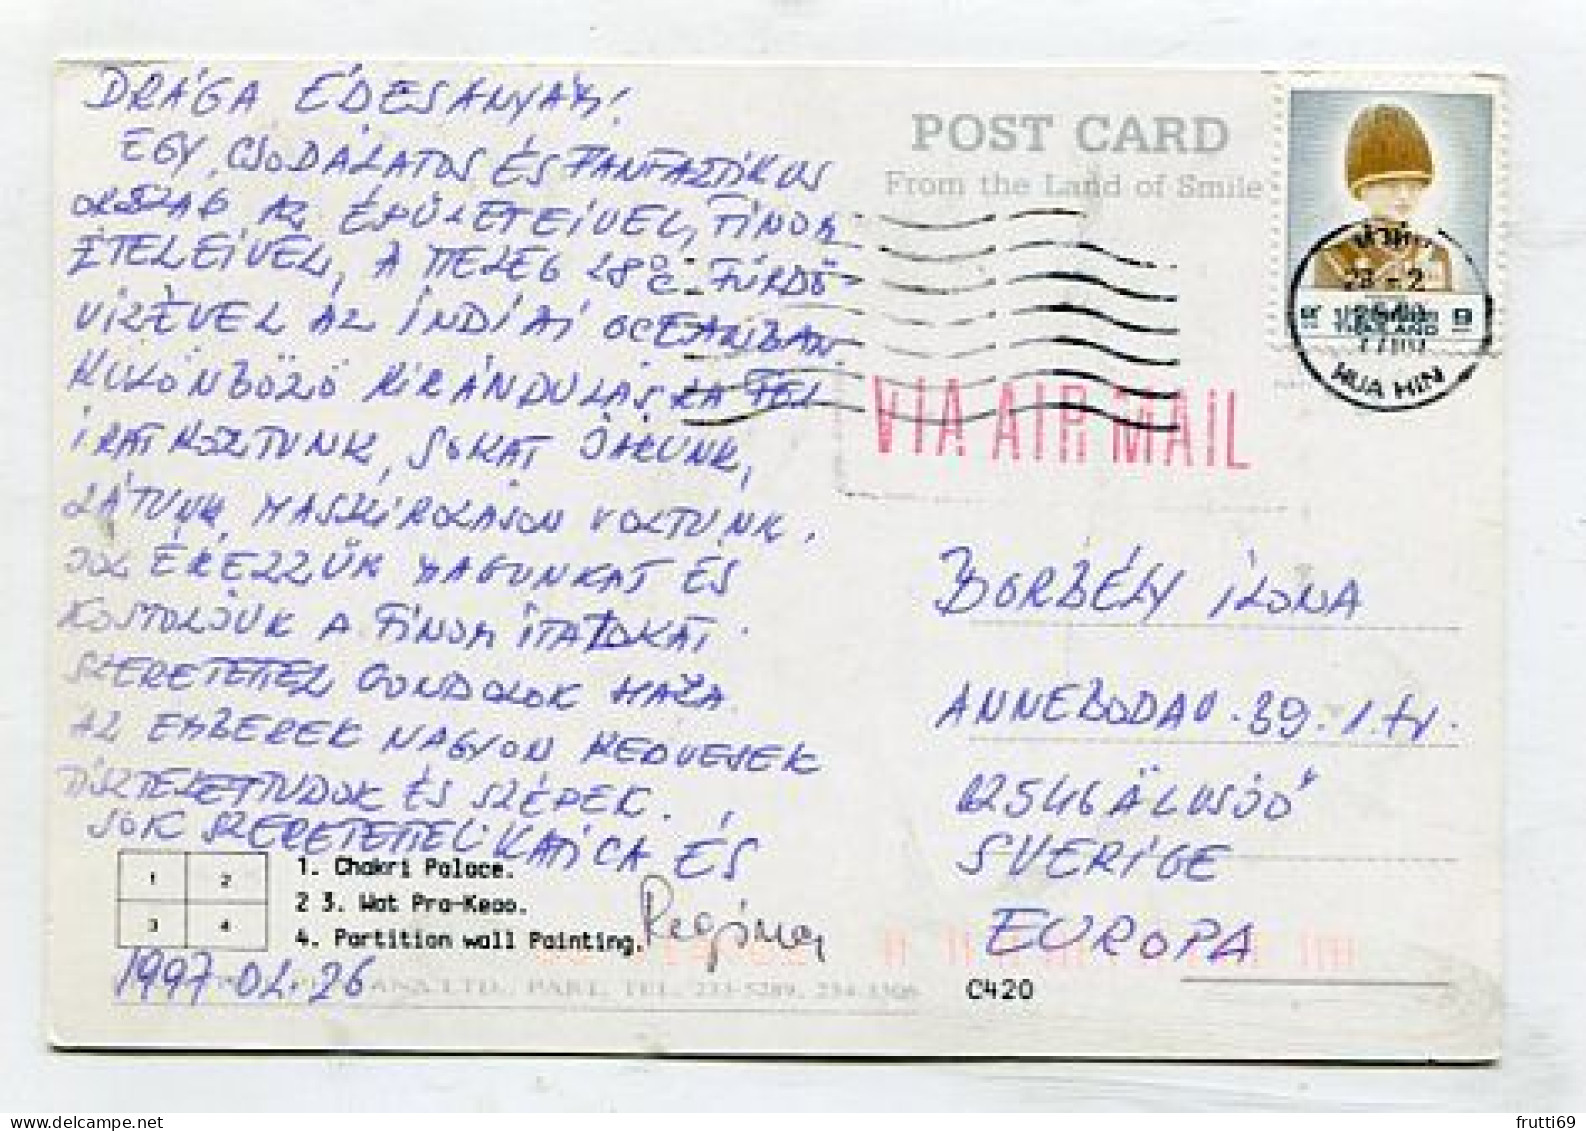 DRÁGA ÉDESANYÁM!
EGY CSODÁLATOS ÉS FANTASZTIKUS
ORSZÁG AZ ÉPÜLETEIVEL, FINOM
ÉTELEIVEL, A MELEG 28°C FÜRDŐ-
VIZÉVEL AZ INDIAI OCEANBAN
KÜLÖNBÖZŐ KIRÁNDULÁSRA FEL
IRATKOZTUNK, SOKAT JÁRUNK,
LÁTUNK MASZIROLÁSON VOLTUNK.
JÓL ÉREZZÜK MAGUNKAT ÉS
KOSTOLJUK A FINOM ITALOKAT.
SZERETETTEL GONDOLOK HAZA
AZ EMBEREK NAGYON KEDVESEK
TISZTELETTUDOK ÉS SZÉPEK.
SOK SZERETETTEL: KATICA ÉS
Regina
1997-02.26
1 2
3 4
1. Chakri Palace.
2 3. Wat Pra-Keoo.
4. Partition wall Painting.
LTD., TEL. 233-5289, 234-3306
C420
POST CARD
From the Land of Smile
THAILAND
9 9
หัวหิน
23 - 2
77110
HUA HIN
VIA AIR MAIL
BORBÉLY ILONA
ANNEBODAV. 39. 1. tr.
12546 ÄLVSJÖ
SVERIGE
EUROPA
frutti69